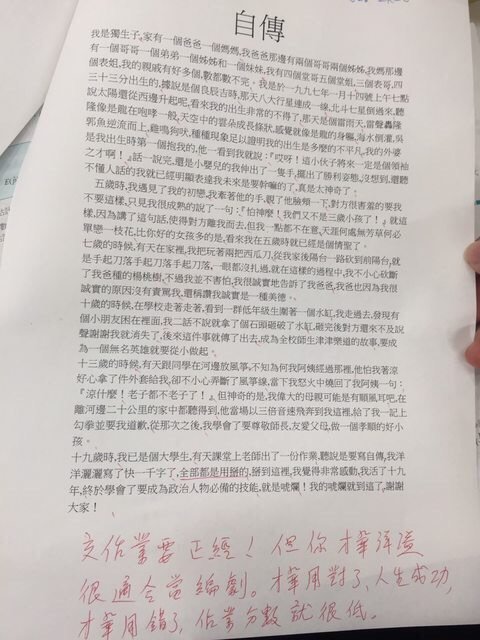 自傳
我是獨生子,家有一個爸爸一個媽媽,我爸爸那邊有兩個哥哥兩個姊姊,我媽那邊
有一個哥哥一個弟弟一個姊姊和一個妹妹,我有四個堂哥五個堂姐,三個表哥,四
個表姐,我的親戚有好多個,數都數不完。我是於一九九七年一月十四號上午七點
三十三分出生的,據說是個良辰吉時,那天八大行星連成一線,北斗七星倒過來,聽
說太陽還從西邊升起呢,看來我的出生非常的不得了,那天是個雷雨天,雷聲轟隆
隆像是龍在咆哮一般,天空中的雲朵成長條狀,感覺就像是龍的身軀,海水倒灌,吳
郭魚逆流而上,雞鳴狗吠,種種現象足以證明我的出生是多麼的不平凡,我的外婆
是我出生時第一個抱我的,他一看到我就說:『哎呀！這小伙子將來一定是個領袖
之才啊！』話一說完,還是小嬰兒的我伸出了一隻手,擺出了勝利姿態,沒想到,還聽
不懂人話的我就已經明顯表達我未來是要幹嘛的了,真是太神奇了;
五歲時,我遇見了我的初戀,我牽著他的手,親了他臉頰一下,對方很害羞的要我
不要這樣,只見我很成熟的說了一句:『怕神麼！我們又不是三歲小孩了！』就這
樣,因為講了這句話,使得對方離我而去,但我一點都不在意,天涯何處無芳草何必
單戀一枝花,比你好的女孩多的是,看來我在五歲時就已經是個情聖了。
七歲的時候,有天在家裡,我把玩著兩把西瓜刀,從我家後陽台一路砍到前陽台,就
是手起刀落手起刀落手起刀落,一眼都沒扎過,就在這樣的過程中,我不小心砍斷
了我爸種的楊桃樹,不過我並不害怕,我很誠實地告訴了我爸爸,我爸也因為我很
誠實的原因沒有責罵我,還稱讚我誠實是一種美德。
十歲的時候,在學校走著走著,發現有一群低年級生圍著一個水缸,我走過去,發現有
個小朋友困在裡面,我二話不說就拿了個石頭砸破了水缸,砸完後對方還來不及說
聲謝謝我就消失了,後來這件事就傳了出去,成為全校師生津津樂道的故事,要成
為一個無名英雄就要從小做起。
十三歲的時候,有天跟同學在河邊放風箏,不知為何我阿姨經過那裡,他怕我著涼
好心拿了件外套給我,卻不小心弄斷了風箏線,當下我怒火中燒回了我阿姨一句:
『涼什麼！老子都不老子了！』但神奇的是,我偉大的母親可能是有順風耳吧,在
離河邊二十公里的家中都聽得到,他當場以三倍音速飛奔到我這裡,給了我一記上
勾拳並要我道歉,從那次之後,我學會了要尊敬師長,友愛父母,做一個孝順的好小
孩。
十九歲時,我已是個大學生,有天課堂上老師出了一份作業,聽說是要寫自傳,我洋
洋灑灑寫了快一千字了,全部都是用掰的,掰到這裡,我覺得非常感動,我活了十九
年,終於學會了要成為政治人物必備的技能,就是唬爛！我的唬爛就到這了,謝謝
大家！
交作業要正經！但你才華洋溢
很適合當編劇。才華用對了,人生成功,
才華用錯了,作業分數就很低。